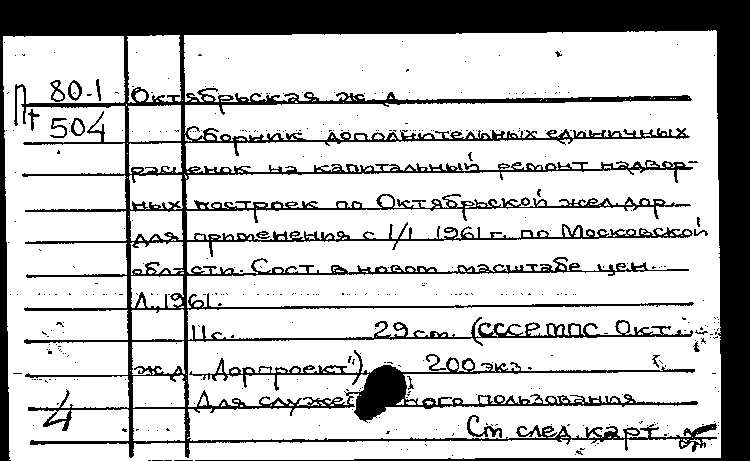 П 80-1 Октябрьская ж. д.
т 504 Сборник дополнительных единичных
расценок на капитальный ремонт надвор-
ных построек по Октябрьской жел. дор.
для применения с 1/I 1961 г. по Московской
области. Сост. в новом масштабе цен.
Л., 1961.
11 с. 29 см. (СССР. МПС. Окт.
ж. д. „Дорпроект"). 200 экз.
4 Для служебного пользования
См след. карт.